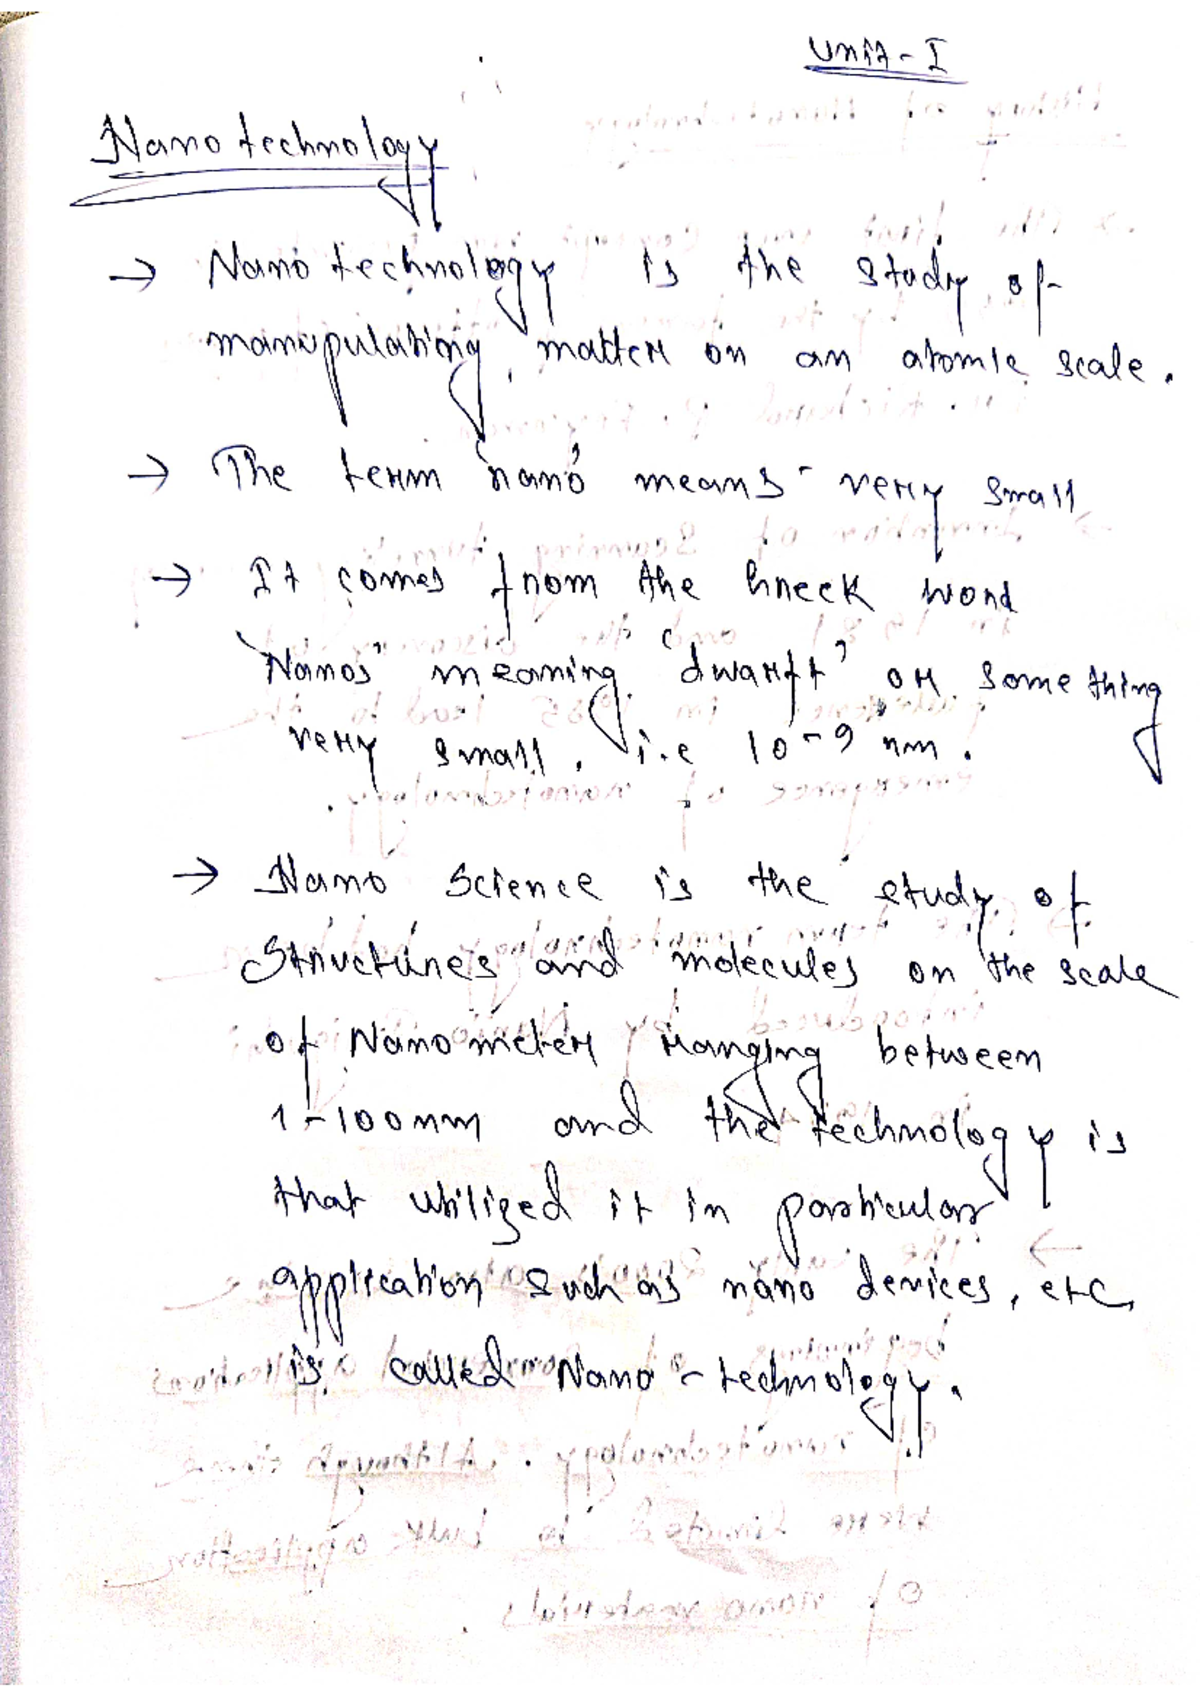 Unit - I
Nanotechnology
→ Nanotechnology is the study of
manupulating matter on an atomic scale.
→ The term 'nano' means - very small
→ It comes from the Greek word
'Nanos' meaning 'dwarft' or something
very small. i.e 10-9 nm.
→ Nano Science is the study of
Structures and molecules on the scale
of Nanometer ranging between
1-100nm and the technology is
that utilized it in particular
application such as nano devices, etc,
is called Nano-technology.